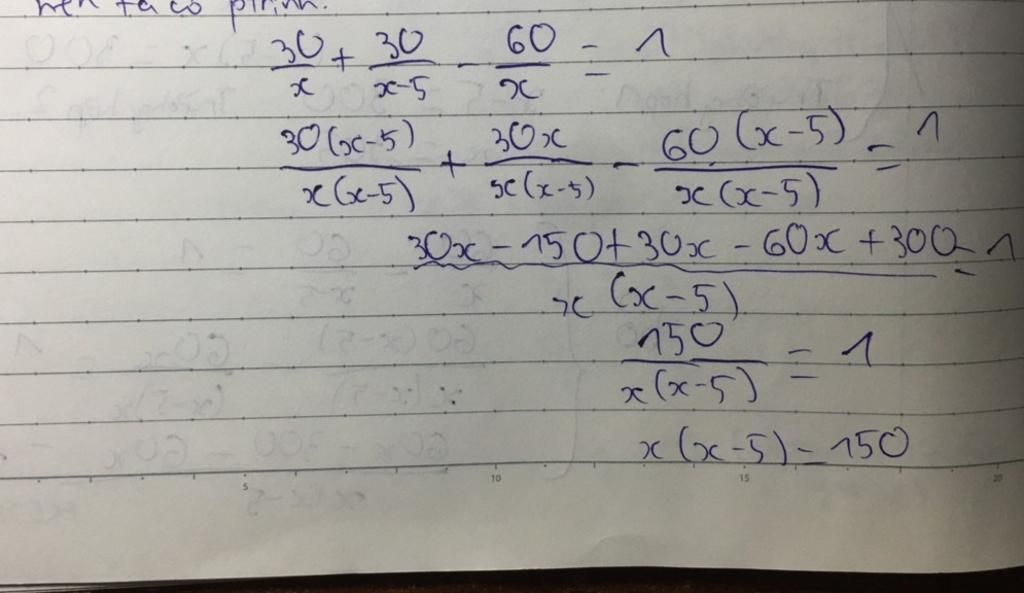 nên ta có ptrình:
30/x + 30/(x-5) - 60/x = 1
30(x-5)/x(x-5) + 30x/x(x-5) - 60(x-5)/x(x-5) = 1
(30x - 150 + 30x - 60x + 300)/x(x-5) = 1
150/x(x-5) = 1
x(x-5) = 150
5 10 15 20